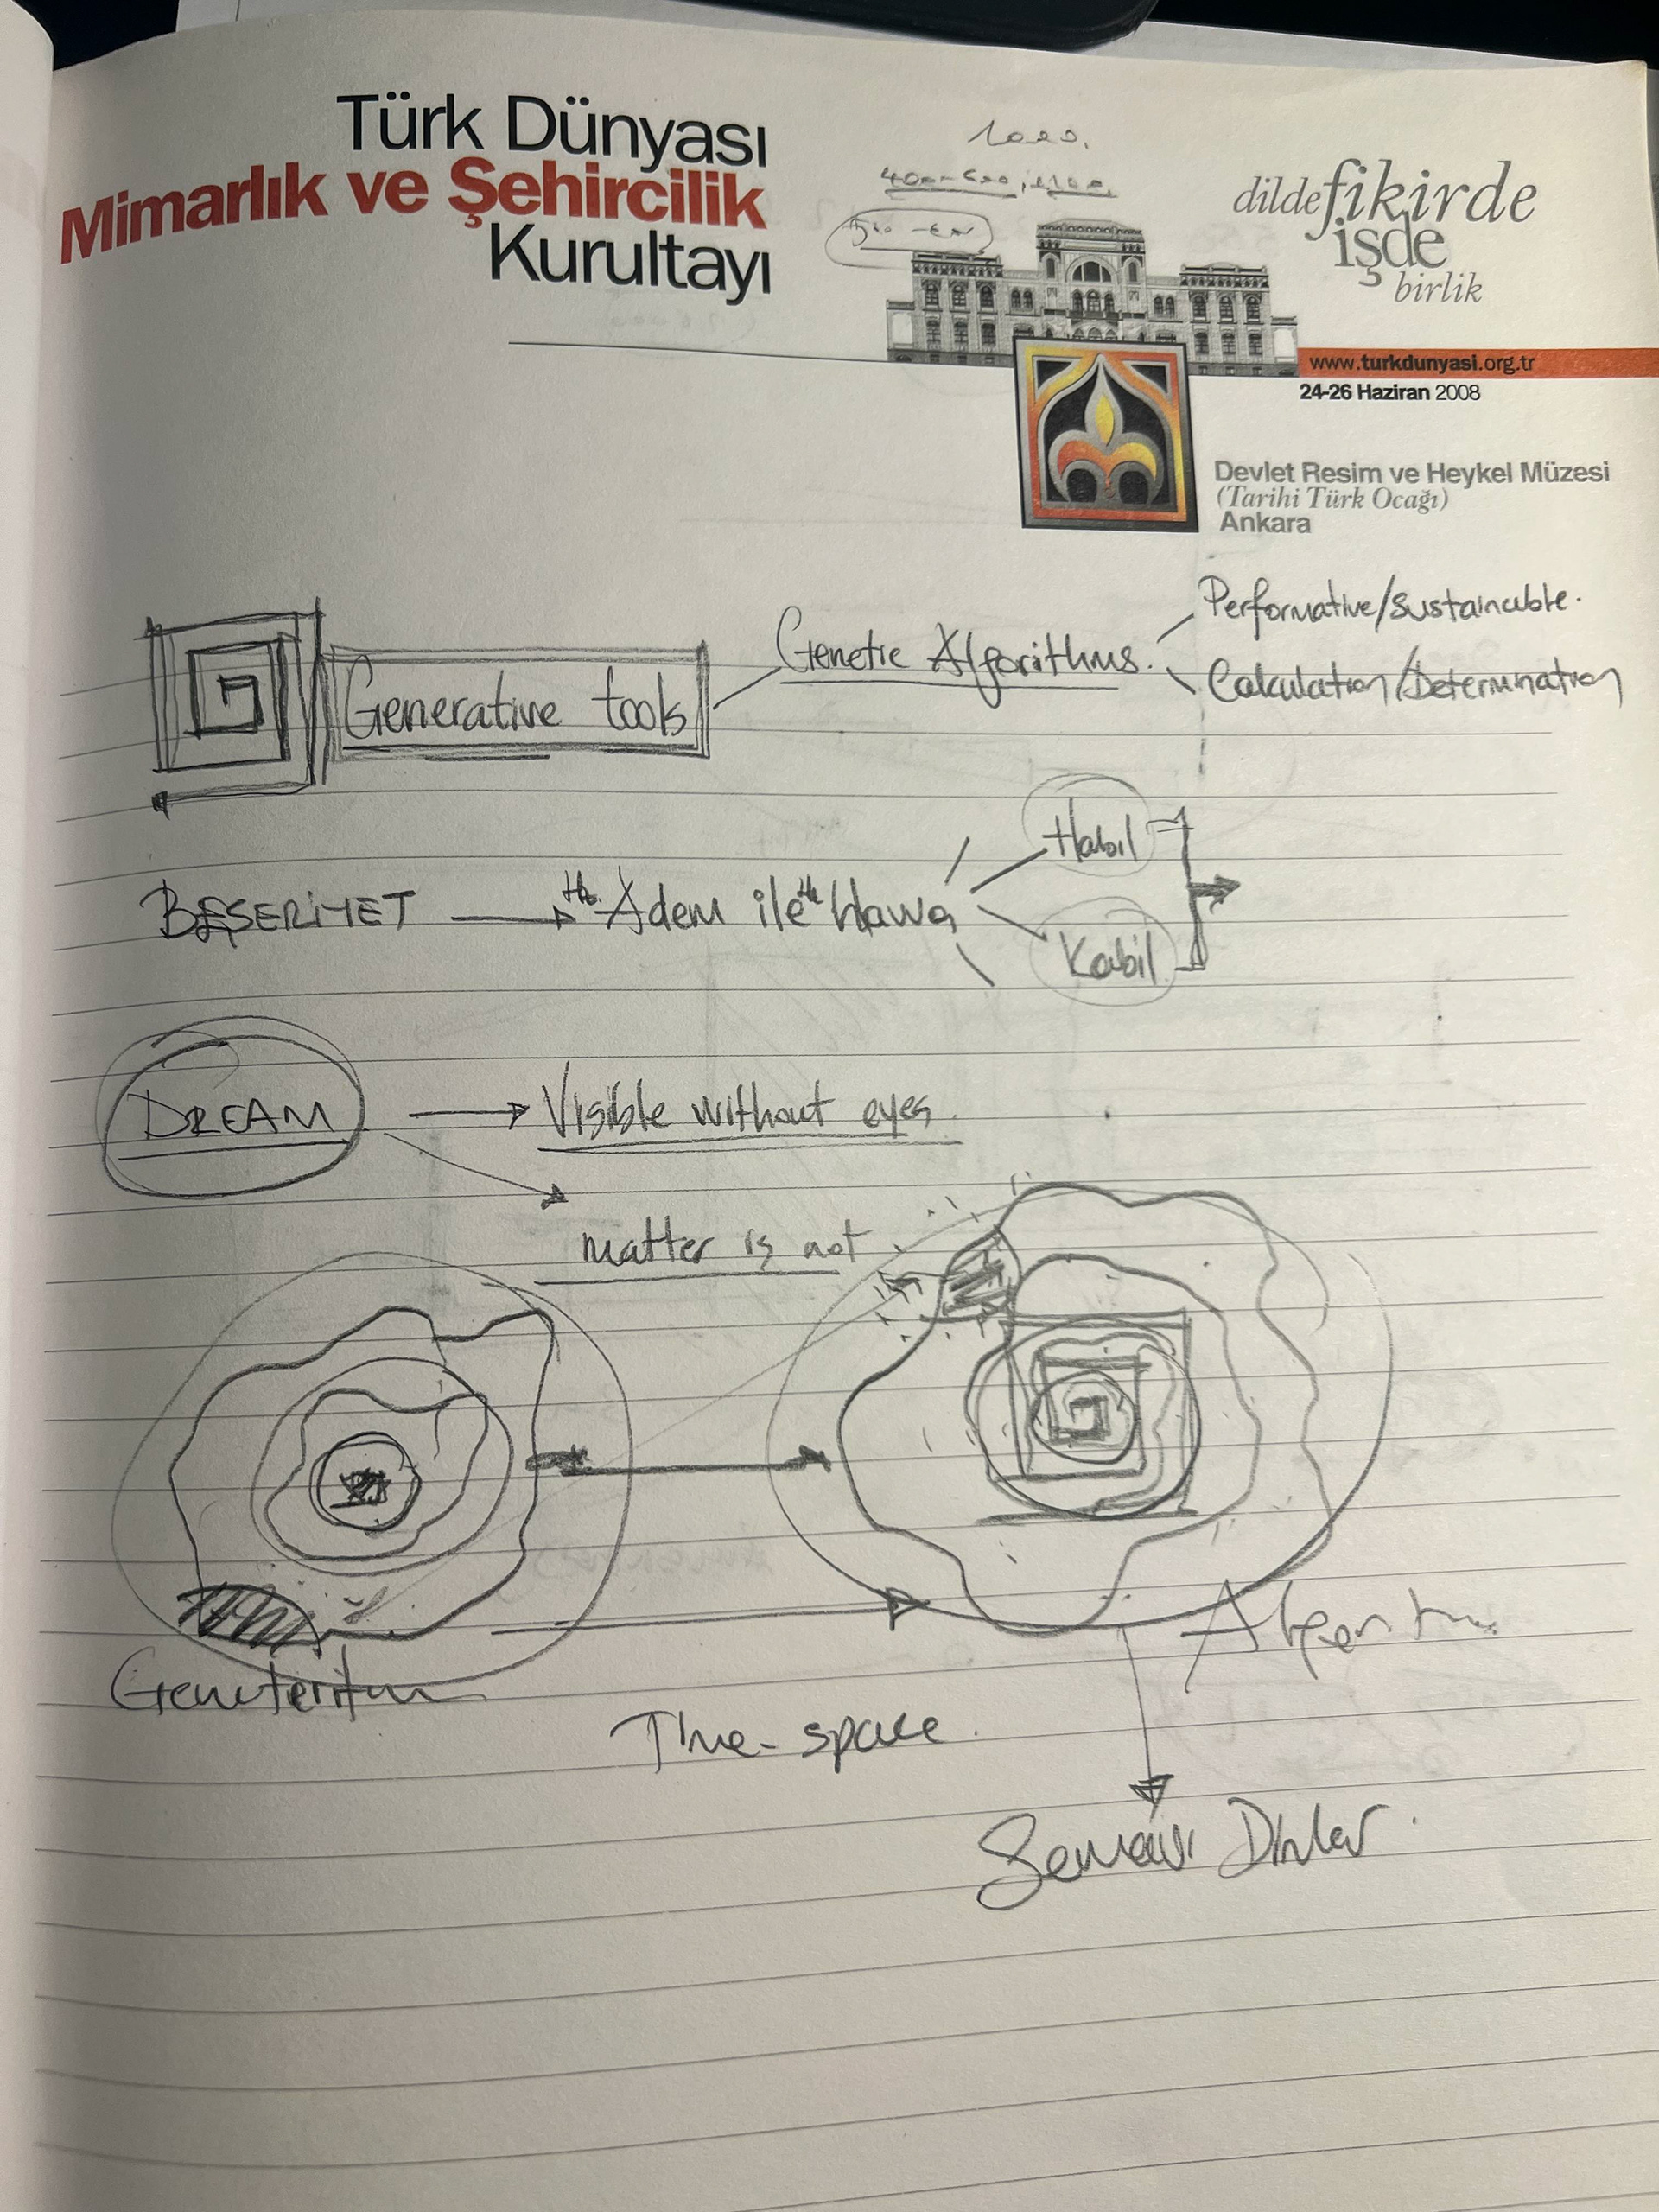 Türk Dünyası
Mimarlık ve Şehircilik
Kurultayı
1000.
dilde fikirde
işde
birlik
www.turkdunyasi.org.tr
24-26 Haziran 2008
Devlet Resim ve Heykel Müzesi
(Tarihi Türk Ocağı)
Ankara
Generative tools
Genetic Algorithms.
Performative/Sustainable.
Calculation/Determination
BEŞERİYET → Hz. Adem ile Hz. Havva
Habil
Kabil
DREAM → Visible without eyes.
matter is not
Time-space.
Semavi Dinler.